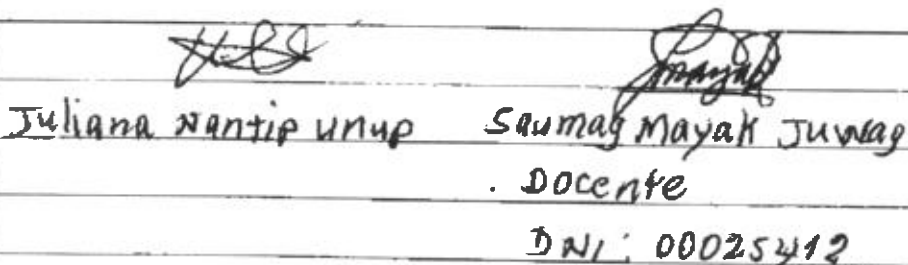 Juliana Nantip Unup Saumag Mayak Juwag
. Docente
DNI: 00025412